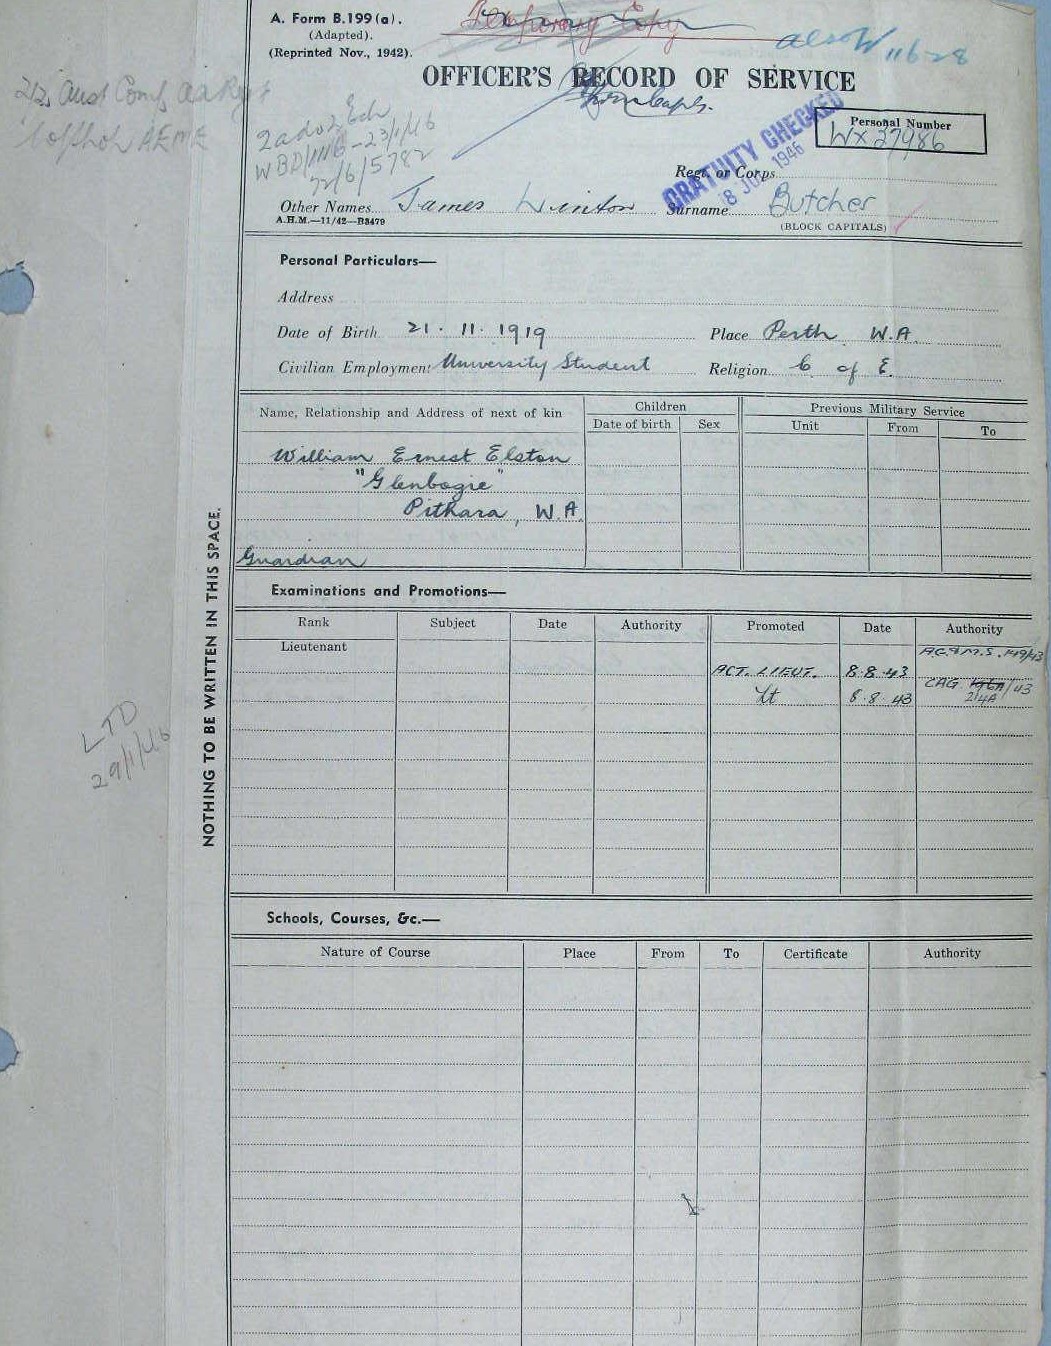 A. Form B.199 (a).
(Adapted).
(Reprinted Nov., 1942).
Temporary Copy
also W 116-28
OFFICER'S RECORD OF SERVICE
GRATUITY CHECKED
8 1946
Personal Number
WX 37986
2/2 Aust Comp AA Regt
AEME
23/1/46
72/6/5782
Regt. or Corps
Other Names James Linton Surname Butcher
A.H.M.—11/42—B3479
(BLOCK CAPITALS)
Personal Particulars—
Address
Date of Birth 21 . 11 . 1919 Place Perth W.A.
Civilian Employment University Student Religion C of E.
Name, Relationship and Address of next of kin Children Previous Military Service
Date of birth Sex Unit From To
William Ernest Elston
"Glenbogie"
Pithara, W.A.
Guardian
NOTHING TO BE WRITTEN IN THIS SPACE.
Examinations and Promotions—
Rank Subject Date Authority Promoted Date Authority
Lieutenant
A.G. & M.S. 149/43
ACT. LIEUT. 8·8·43
Lt 8·8·43 CAG /43
214A
LTD
29/1/46
Schools, Courses, &c.—
Nature of Course Place From To Certificate Authority